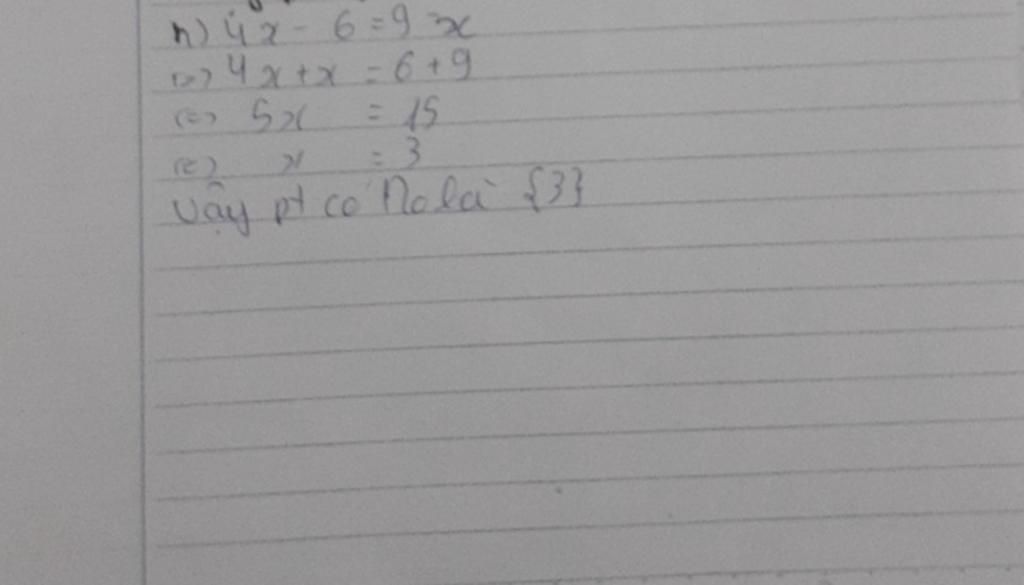 h) 4x - 6 = 9 - x
<=> 4x + x = 6 + 9
<=> 5x = 15
<=> x = 3
Vậy pt có No là {3}